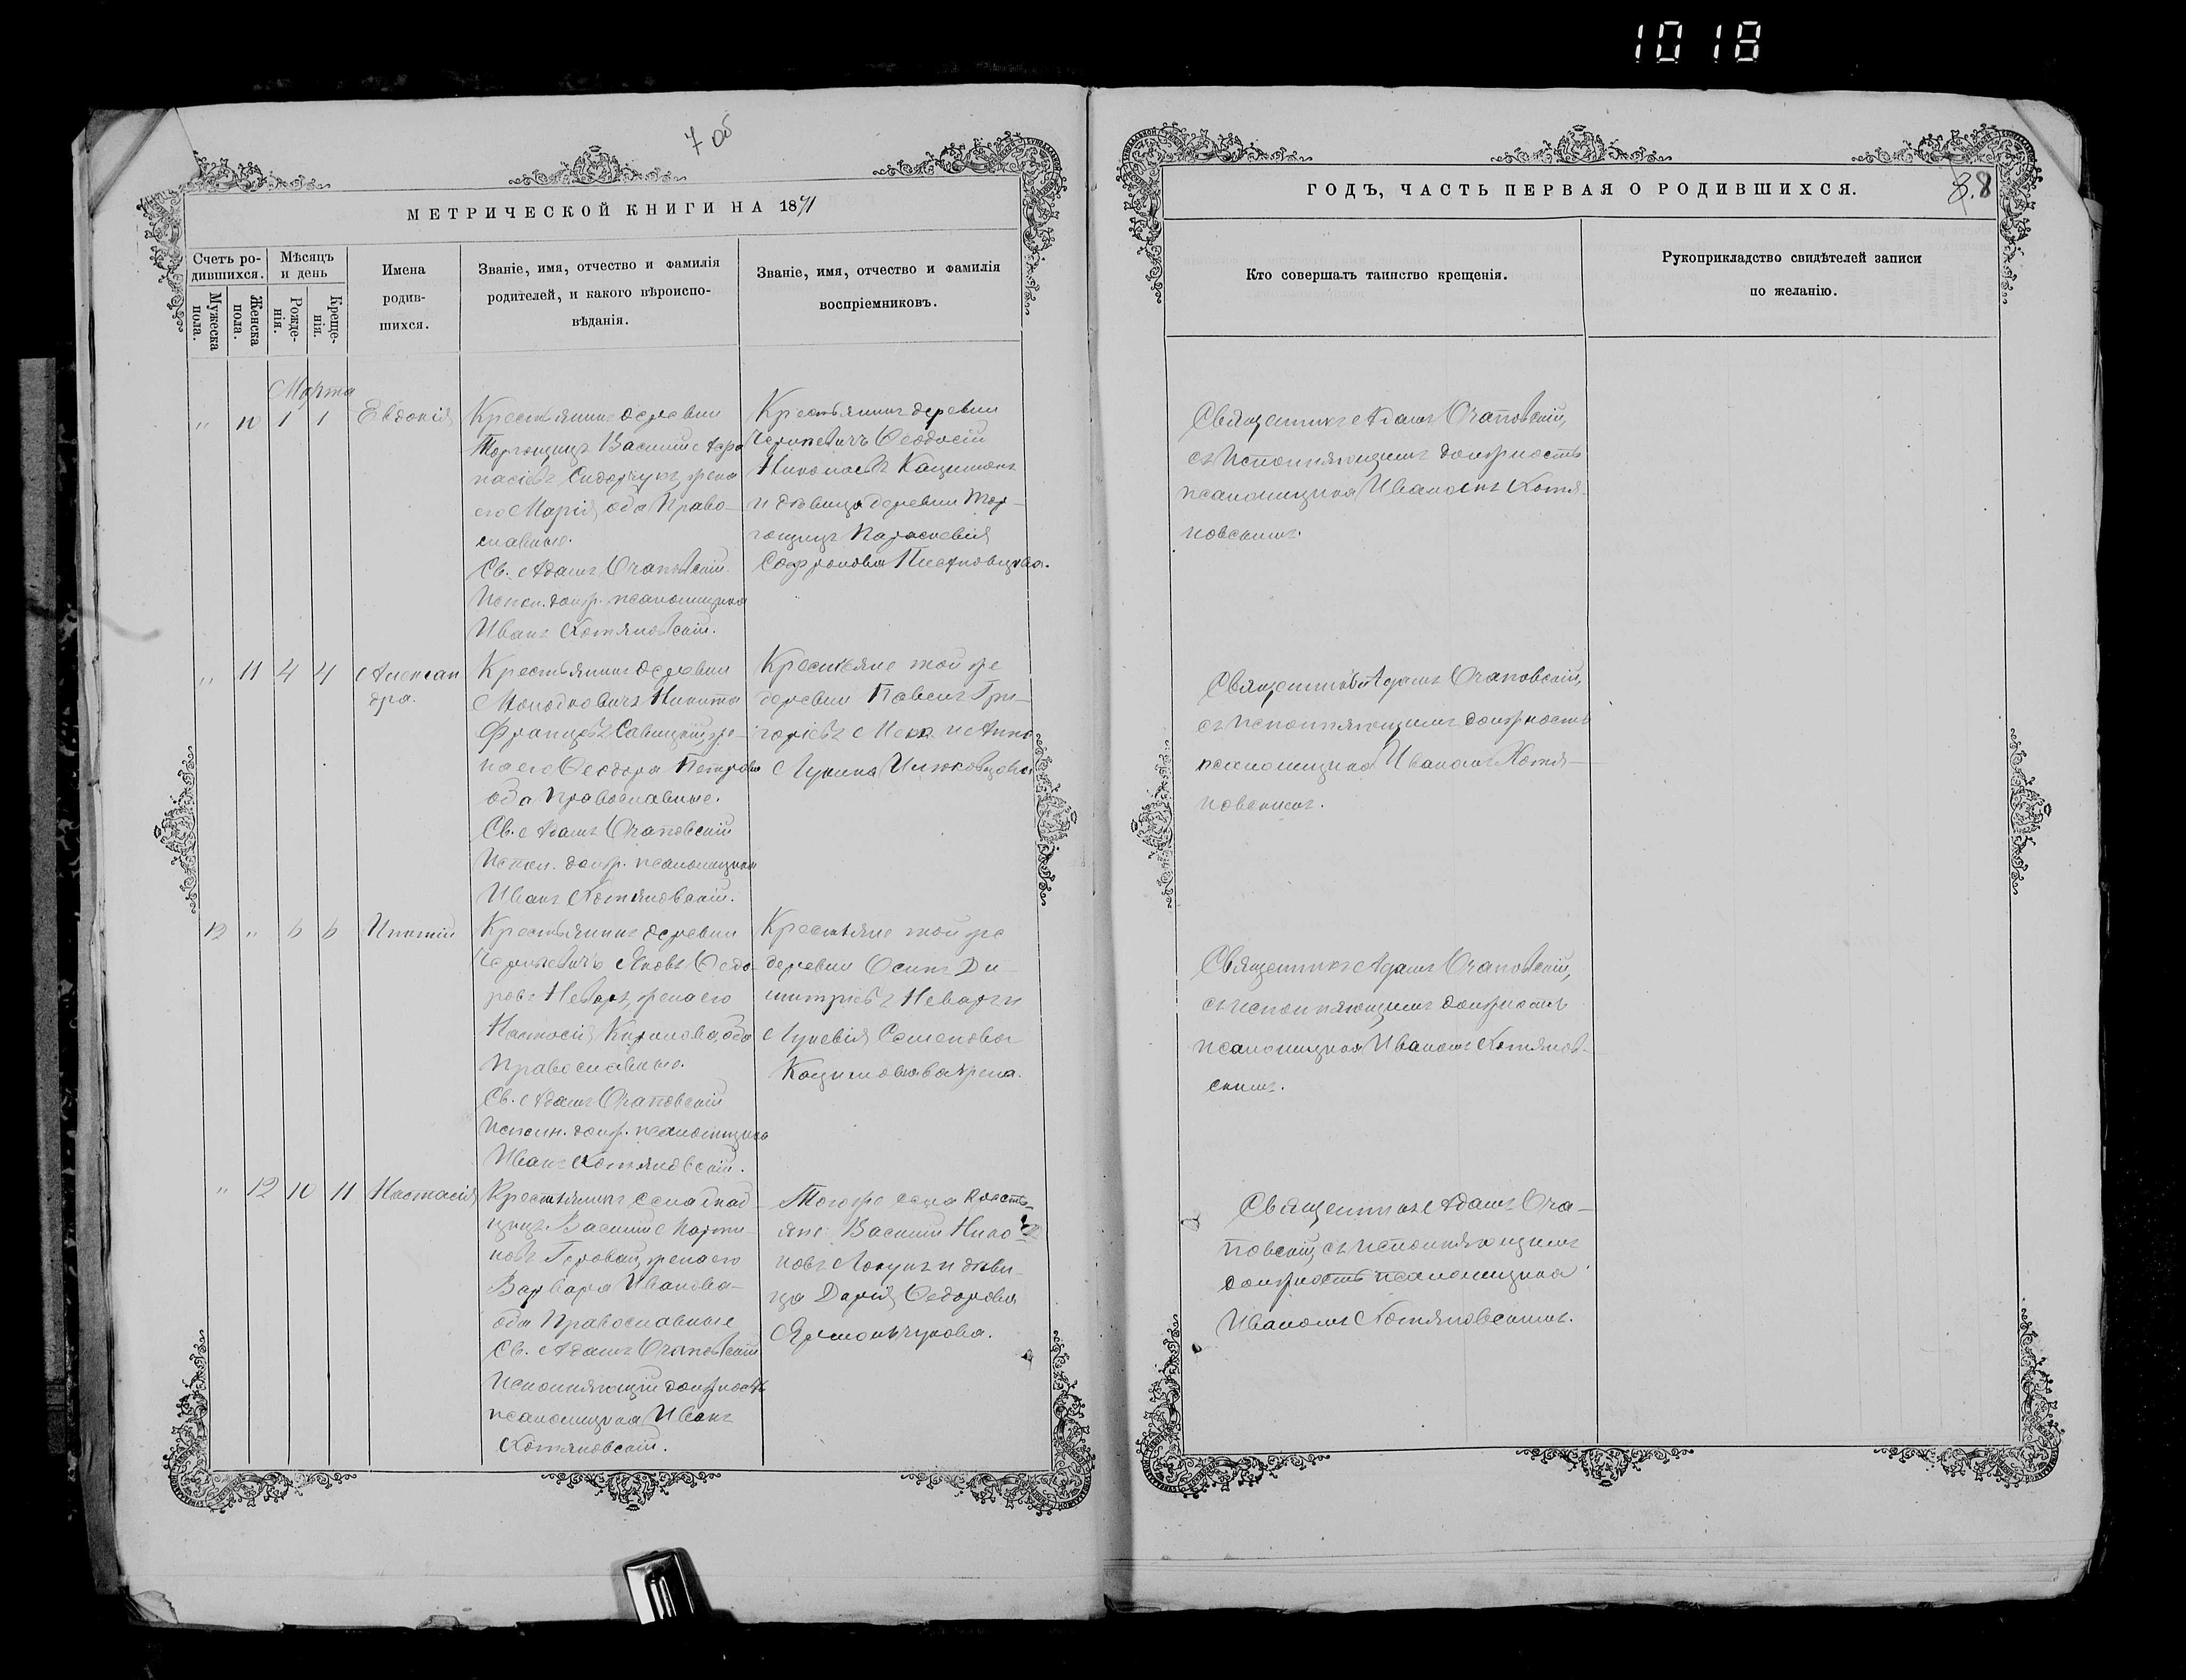 1018
7 об
МЕТРИЧЕСКОЙ КНИГИ НА 1871
ГОДЪ, ЧАСТЬ ПЕРВАЯ О РОДИВШИХСЯ.
8
Счетъ ро-
дившихся.
Мужеска
пола.
Женска
пола.
Мѣсяцъ
и день
Рожде-
нія.
Креще-
нія.
Имена
родив-
шихся.
Званіе, имя, отчество и фамилія
родителей, и какого вѣроиспо-
вѣданія.
Званіе, имя, отчество и фамилія
воспріемниковъ.
Кто совершалъ таинство крещенія.
Рукоприкладство свидѣтелей записи
по желанію.
Марта
" 10 1 1 Евдокія
Крестьянинъ деревни
Василій Афа
насіевъ Сидорчукъ, жена
его Марія, оба Право-
славные.
Св. Адамъ
Исполн. долж. псаломщика
Иванъ Котяновскій.
Крестьянинъ деревни
Ѳеодосій
Николаевъ
и дѣвица деревни
Параскевія
Софронова
Священникъ Адамъ
съ исполняющимъ должность
псаломщика Иваномъ Котя-
новскимъ.
" 11 4 4 Алексан
дра.
Крестьянинъ деревни
Никита
Францевъ Савицкій, же-
на его Ѳеодора Петрова
оба Православные.
Св. Адамъ
Исполн. долж. псаломщика
Иванъ Котяновскій.
Крестьяне той же
деревни Павелъ Гри-
горіевъ и Анна
Лукина
Священникъ Адамъ
съ исполняющимъ должность
псаломщика Иваномъ Котя-
новскимъ.
12 " 6 6 Ипатій
Крестьянинъ деревни
Яковъ Ѳедо-
ровъ Неваръ, жена его
Настасія Кирилова, оба
Православные.
Св. Адамъ
Исполн. долж. псаломщика
Иванъ Котяновскій.
Крестьяне той же
деревни Осипъ Ди-
митріевъ Неваръ и
Лукевія Семенова
жена.
Священникъ Адамъ
съ исполняющимъ должность
псаломщика Иваномъ Котянов-
скимъ.
" 12 10 11 Настасія
Крестьянинъ села
Василій Марти-
новъ жена его
Варвара Иванова
оба Православные
Св. Адамъ
Исполняющій должность
псаломщика Иванъ
Котяновскій.
Того же села Кресть-
яне: Василій
и дѣви-
ца Дарія Ѳедорова
Священникъ Адамъ
съ исполняющимъ
должность псаломщика
Иваномъ Котяновскимъ.